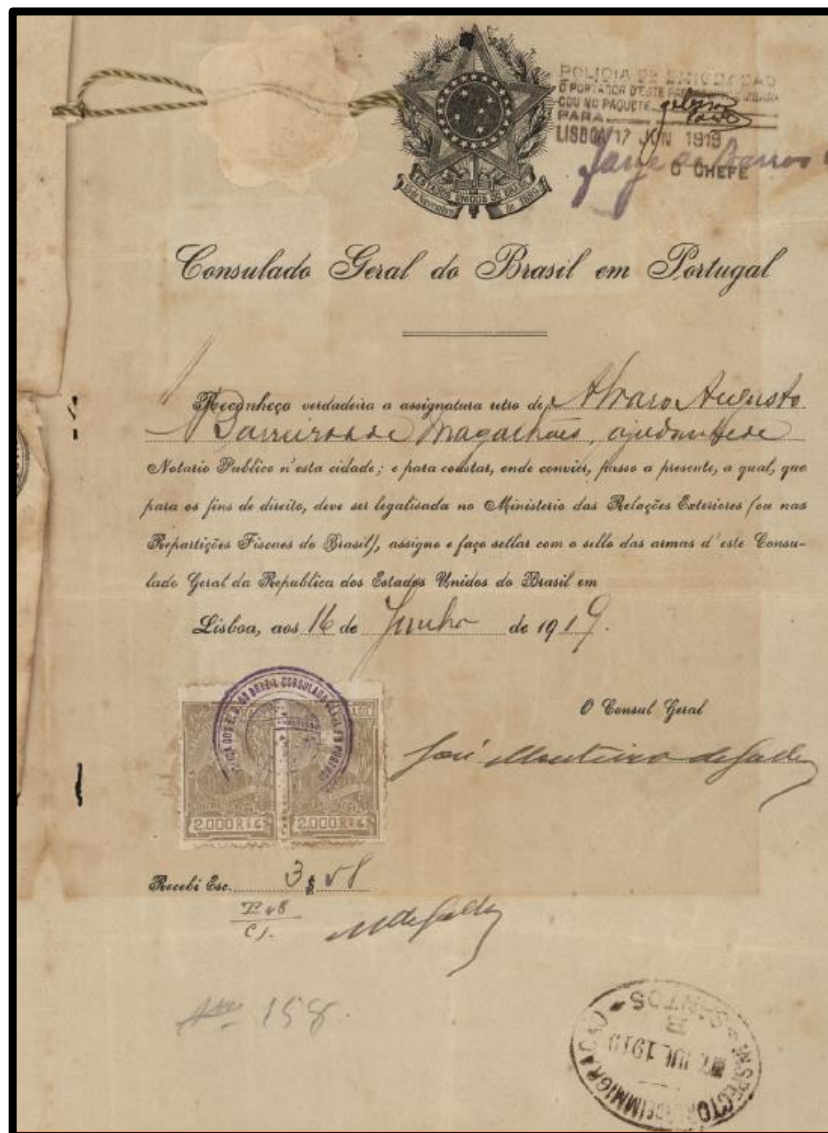 POLICIA DE EMIGRAÇÃO
O PORTADOR D'ESTE
COU NO PAQUETE
PARA
LISBOA 17 JUN 1919
O CHEFE
ESTADOS UNIDOS DO BRASIL
15 de Novembro de 1889
Consulado Geral do Brasil em Portugal
Reconheço verdadeira a assignatura retro de Alvaro Augusto
de Magalhães, ajudante de
Notario Publico n'esta cidade; e para constar, onde convier, passo a presente, a qual, que
para os fins de direito, deve ser legalisada no Ministerio das Relações Exteriores (ou nas
Repartições Fiscaes do Brasil), assigno e faço sellar com o sello das armas d'este Consu-
lado Geral da Republica dos Estados Unidos do Brasil em
Lisboa, aos 16 de Junho de 1919.
O Consul Geral
José Monteiro de
2.000 RÉIS 2.000 RÉIS
Recebi Esc. 3 $ 58
158.
SANTOS
B
JUL 1919